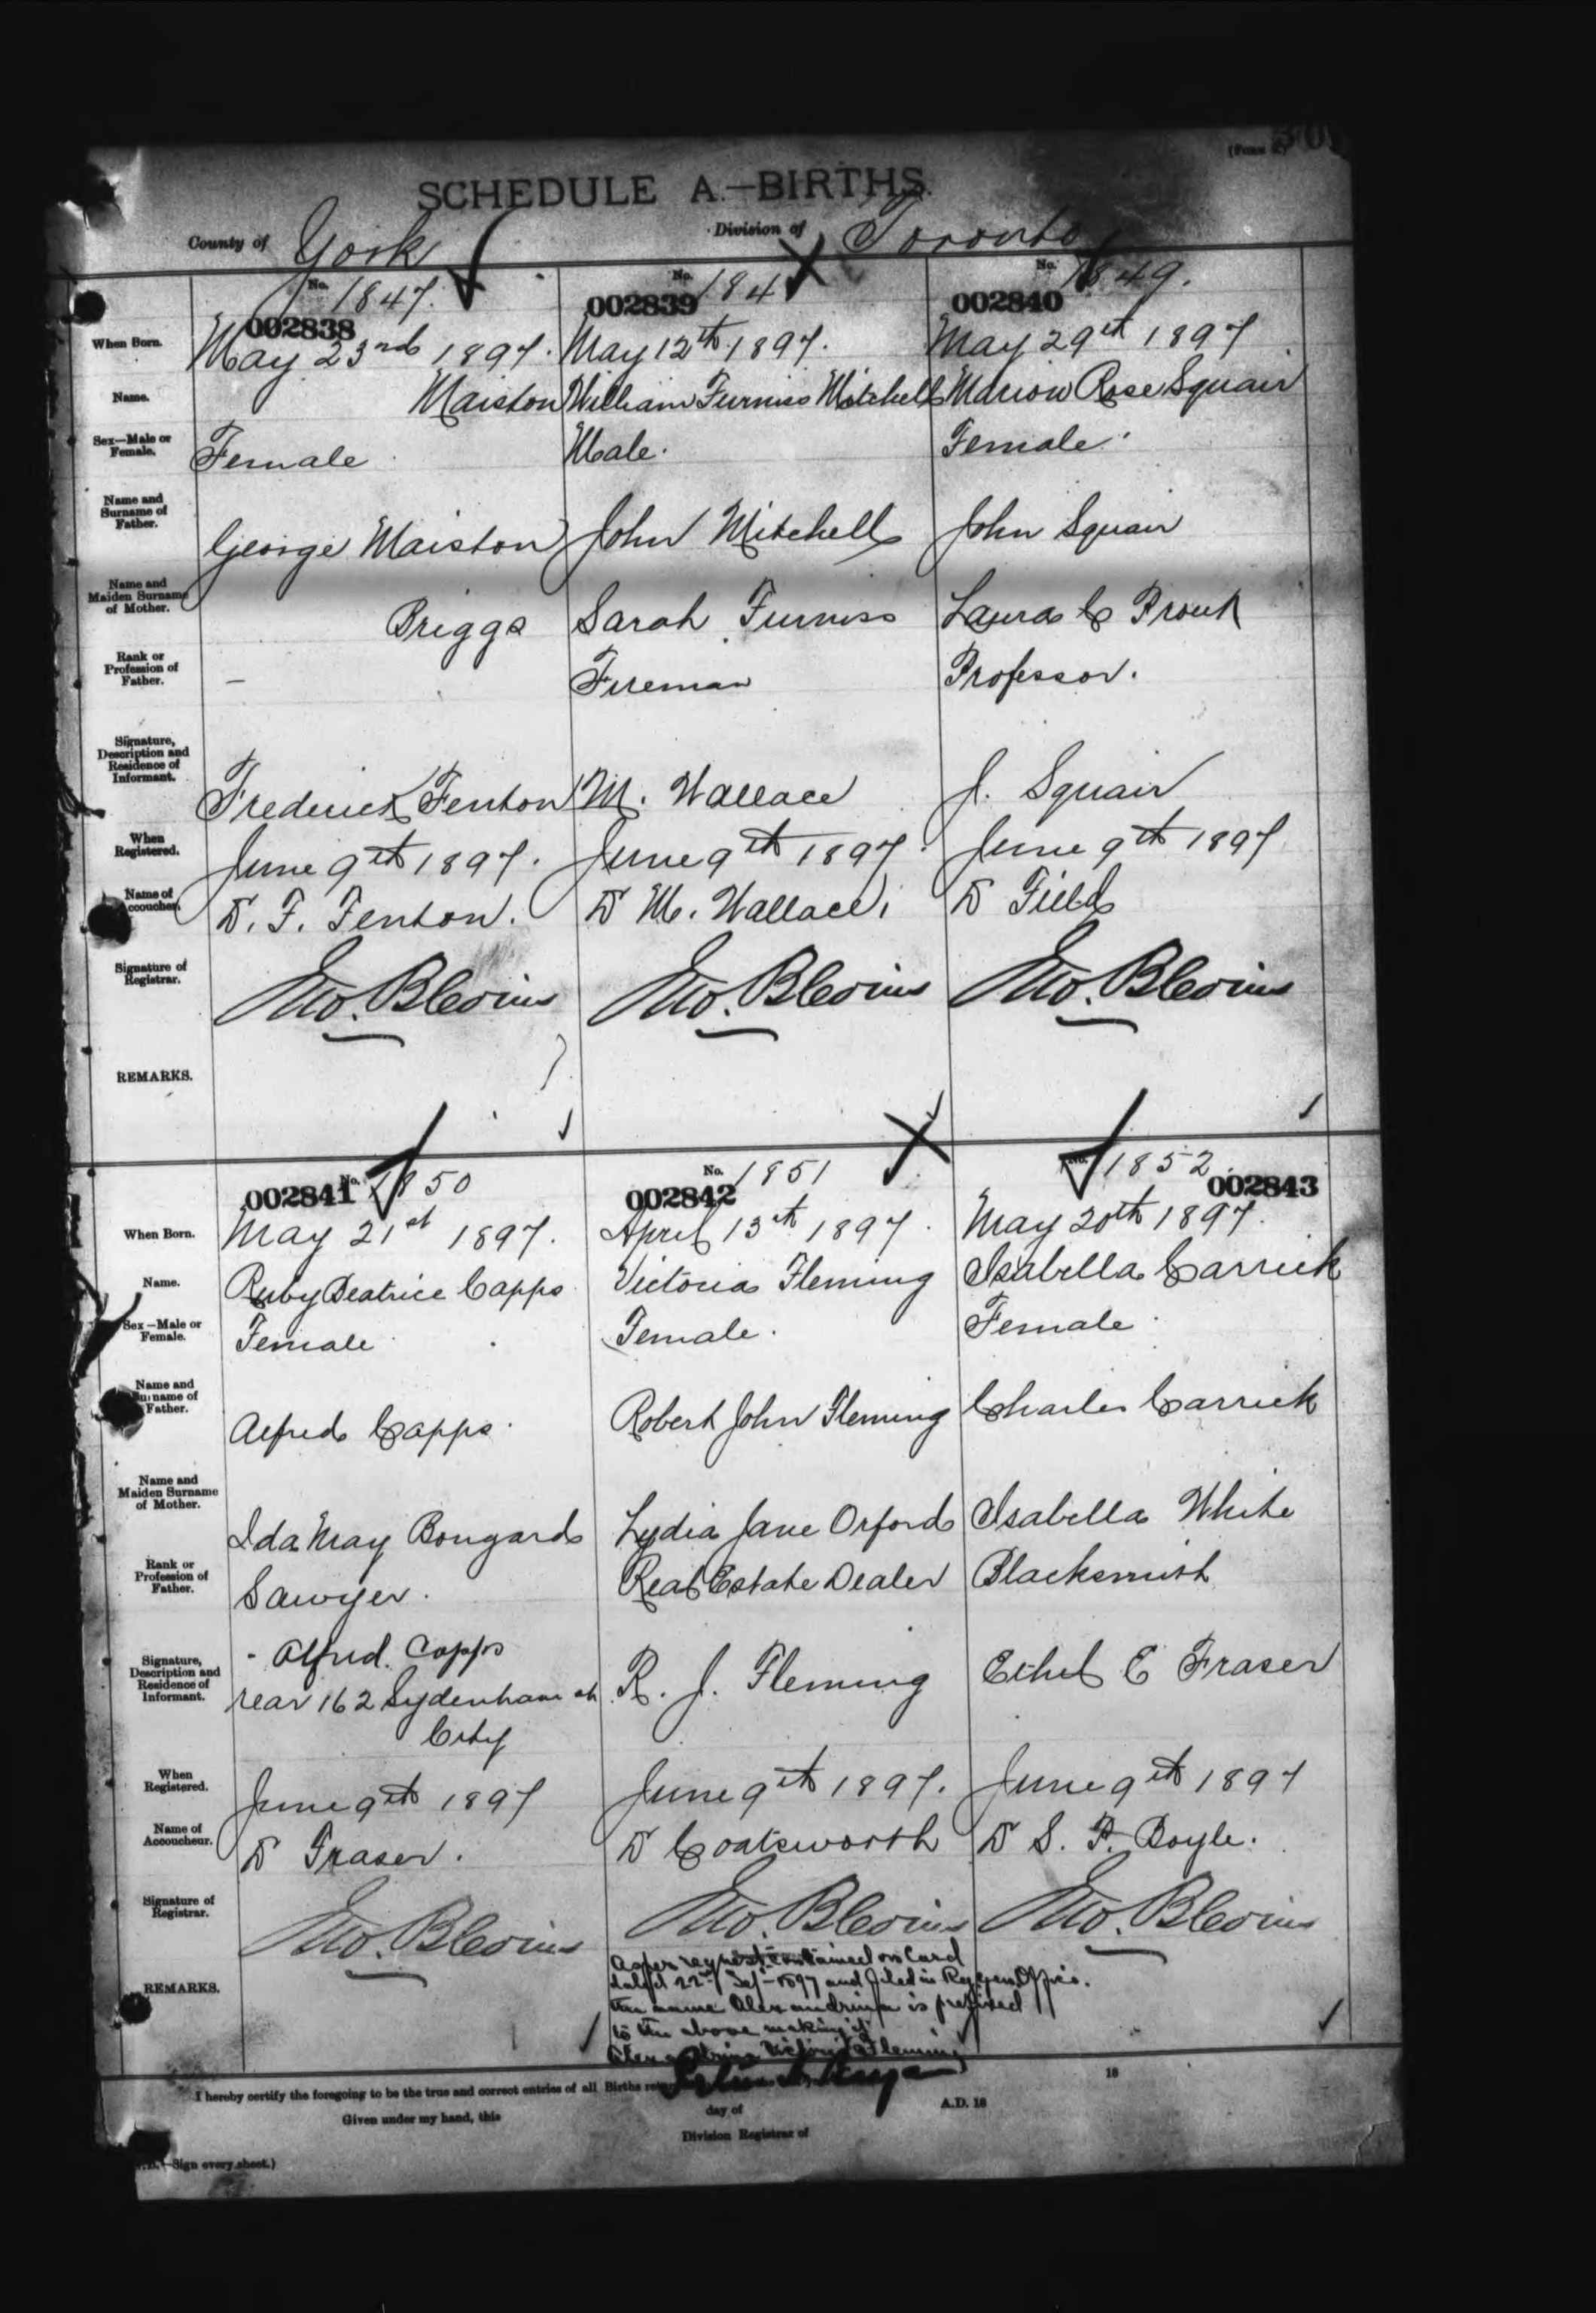 SCHEDULE A.—BIRTHS.
County of York Division of Toronto
No. 1847. No. 184 No. 1849.
002838 002839 002840
When Born. May 23rd 1897. May 12th 1897. May 29th 1897
Name. Maiston William Furniss Mitchell Marion Rose Squair
Sex—Male or Female. Female Male. Female.
Name and Surname of Father. George Maiston John Mitchell John Squair
Name and Maiden Surname of Mother. Briggs Sarah Furniss Laura C Prout
Rank or Profession of Father. – Fireman Professor.
Signature, Description and Residence of Informant. Frederick Fenton M. Wallace J. Squair
When Registered. June 9th 1897. June 9th 1897. June 9th 1897
Name of Accoucheur. D. F. Fenton. D M. Wallace. D Field
Signature of Registrar. Jno. Blevins Jno. Blevins Jno. Blevins
REMARKS.
No. 1850 No. 1851 No. 1852.
002841 002842 002843
When Born. May 21st 1897. April 13th 1897. May 20th 1897.
Name. Ruby Beatrice Capps Victoria Fleming Isabella Carrick
Sex—Male or Female. Female Female. Female
Name and Surname of Father. Alfred Capps. Robert John Fleming Charles Carrick
Name and Maiden Surname of Mother. Ida May Bongard Lydia Jane Orford Isabella White
Rank or Profession of Father. Sawyer. Real Estate Dealer Blacksmith
Signature, Description and Residence of Informant. Alfred. Capps R. J. Fleming Ethel E Fraser
rear 162 Sydenham st
City
When Registered. June 9th 1897 June 9th 1897. June 9th 1897
Name of Accoucheur. D Fraser. D Coatsworth D S. F. Boyle.
Signature of Registrar. Jno. Blevins Jno. Blevins Jno. Blevins
REMARKS. As per request contained on Card
dated 22nd 1897 and filed in Reg Gen Office.
the name Alexandrina is prefixed
to the above making it
Alexandrina Victoria Fleming
I hereby certify the foregoing to be the true and correct entries of all Births 18
Given under my hand, this day of A.D. 18
Division Registrar of
—Sign every sheet.)